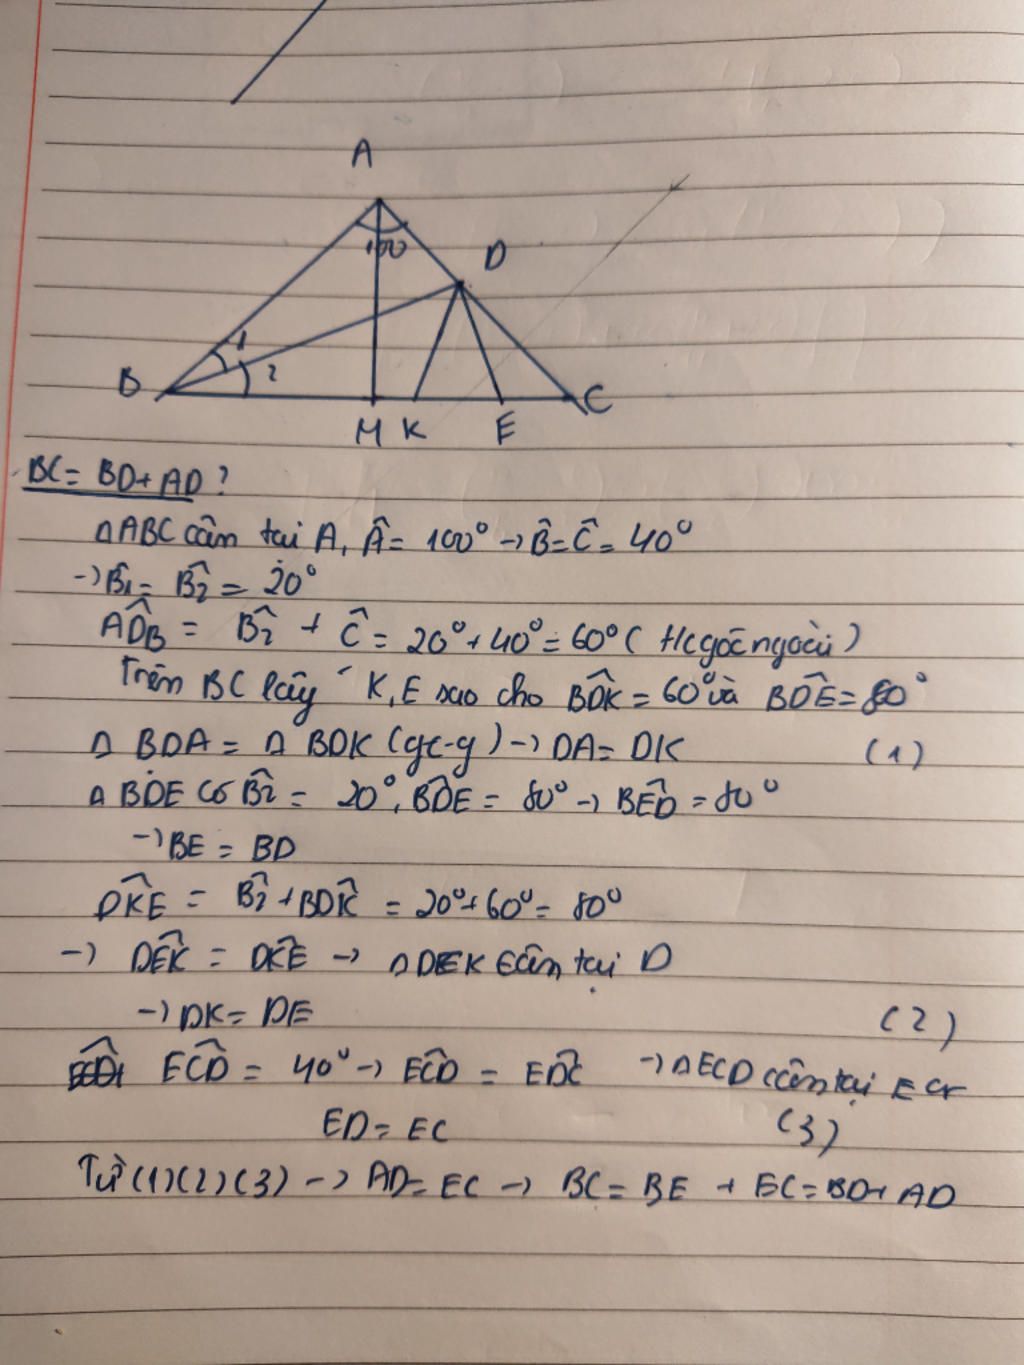 A
100
D
1
B
2
M K E C
BC = BD + AD ?
ΔABC cân tại A, Â = 100° → B̂ = Ĉ = 40°
→ B̂1 = B̂2 = 20°
ADB̂ = B̂2 + Ĉ = 20° + 40° = 60° ( t/c góc ngoài )
Trên BC lấy K, E sao cho BDK̂ = 60° và BDÊ = 80°
Δ BDA = Δ BDK (gc-g) → DA = DK (1)
Δ BDE có B̂2 = 20°, BDÊ = 80° → BED̂ = 80°
→ BE = BD
DKÊ = B̂2 + BDK̂ = 20° + 60° = 80°
→ DEK̂ = DKÊ → Δ DEK cân tại D
→ DK = DE (2)
ECD̂ = 40° → ECD̂ = EDĈ → Δ ECD cân tại E
ED = EC (3)
Từ (1) (2) (3) → AD = EC → BC = BE + EC = BD + AD